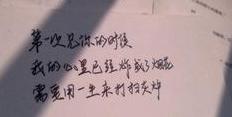 第一次见你的时候
我的心里已经炸成了烟花
需要用一生来打扫灰炸